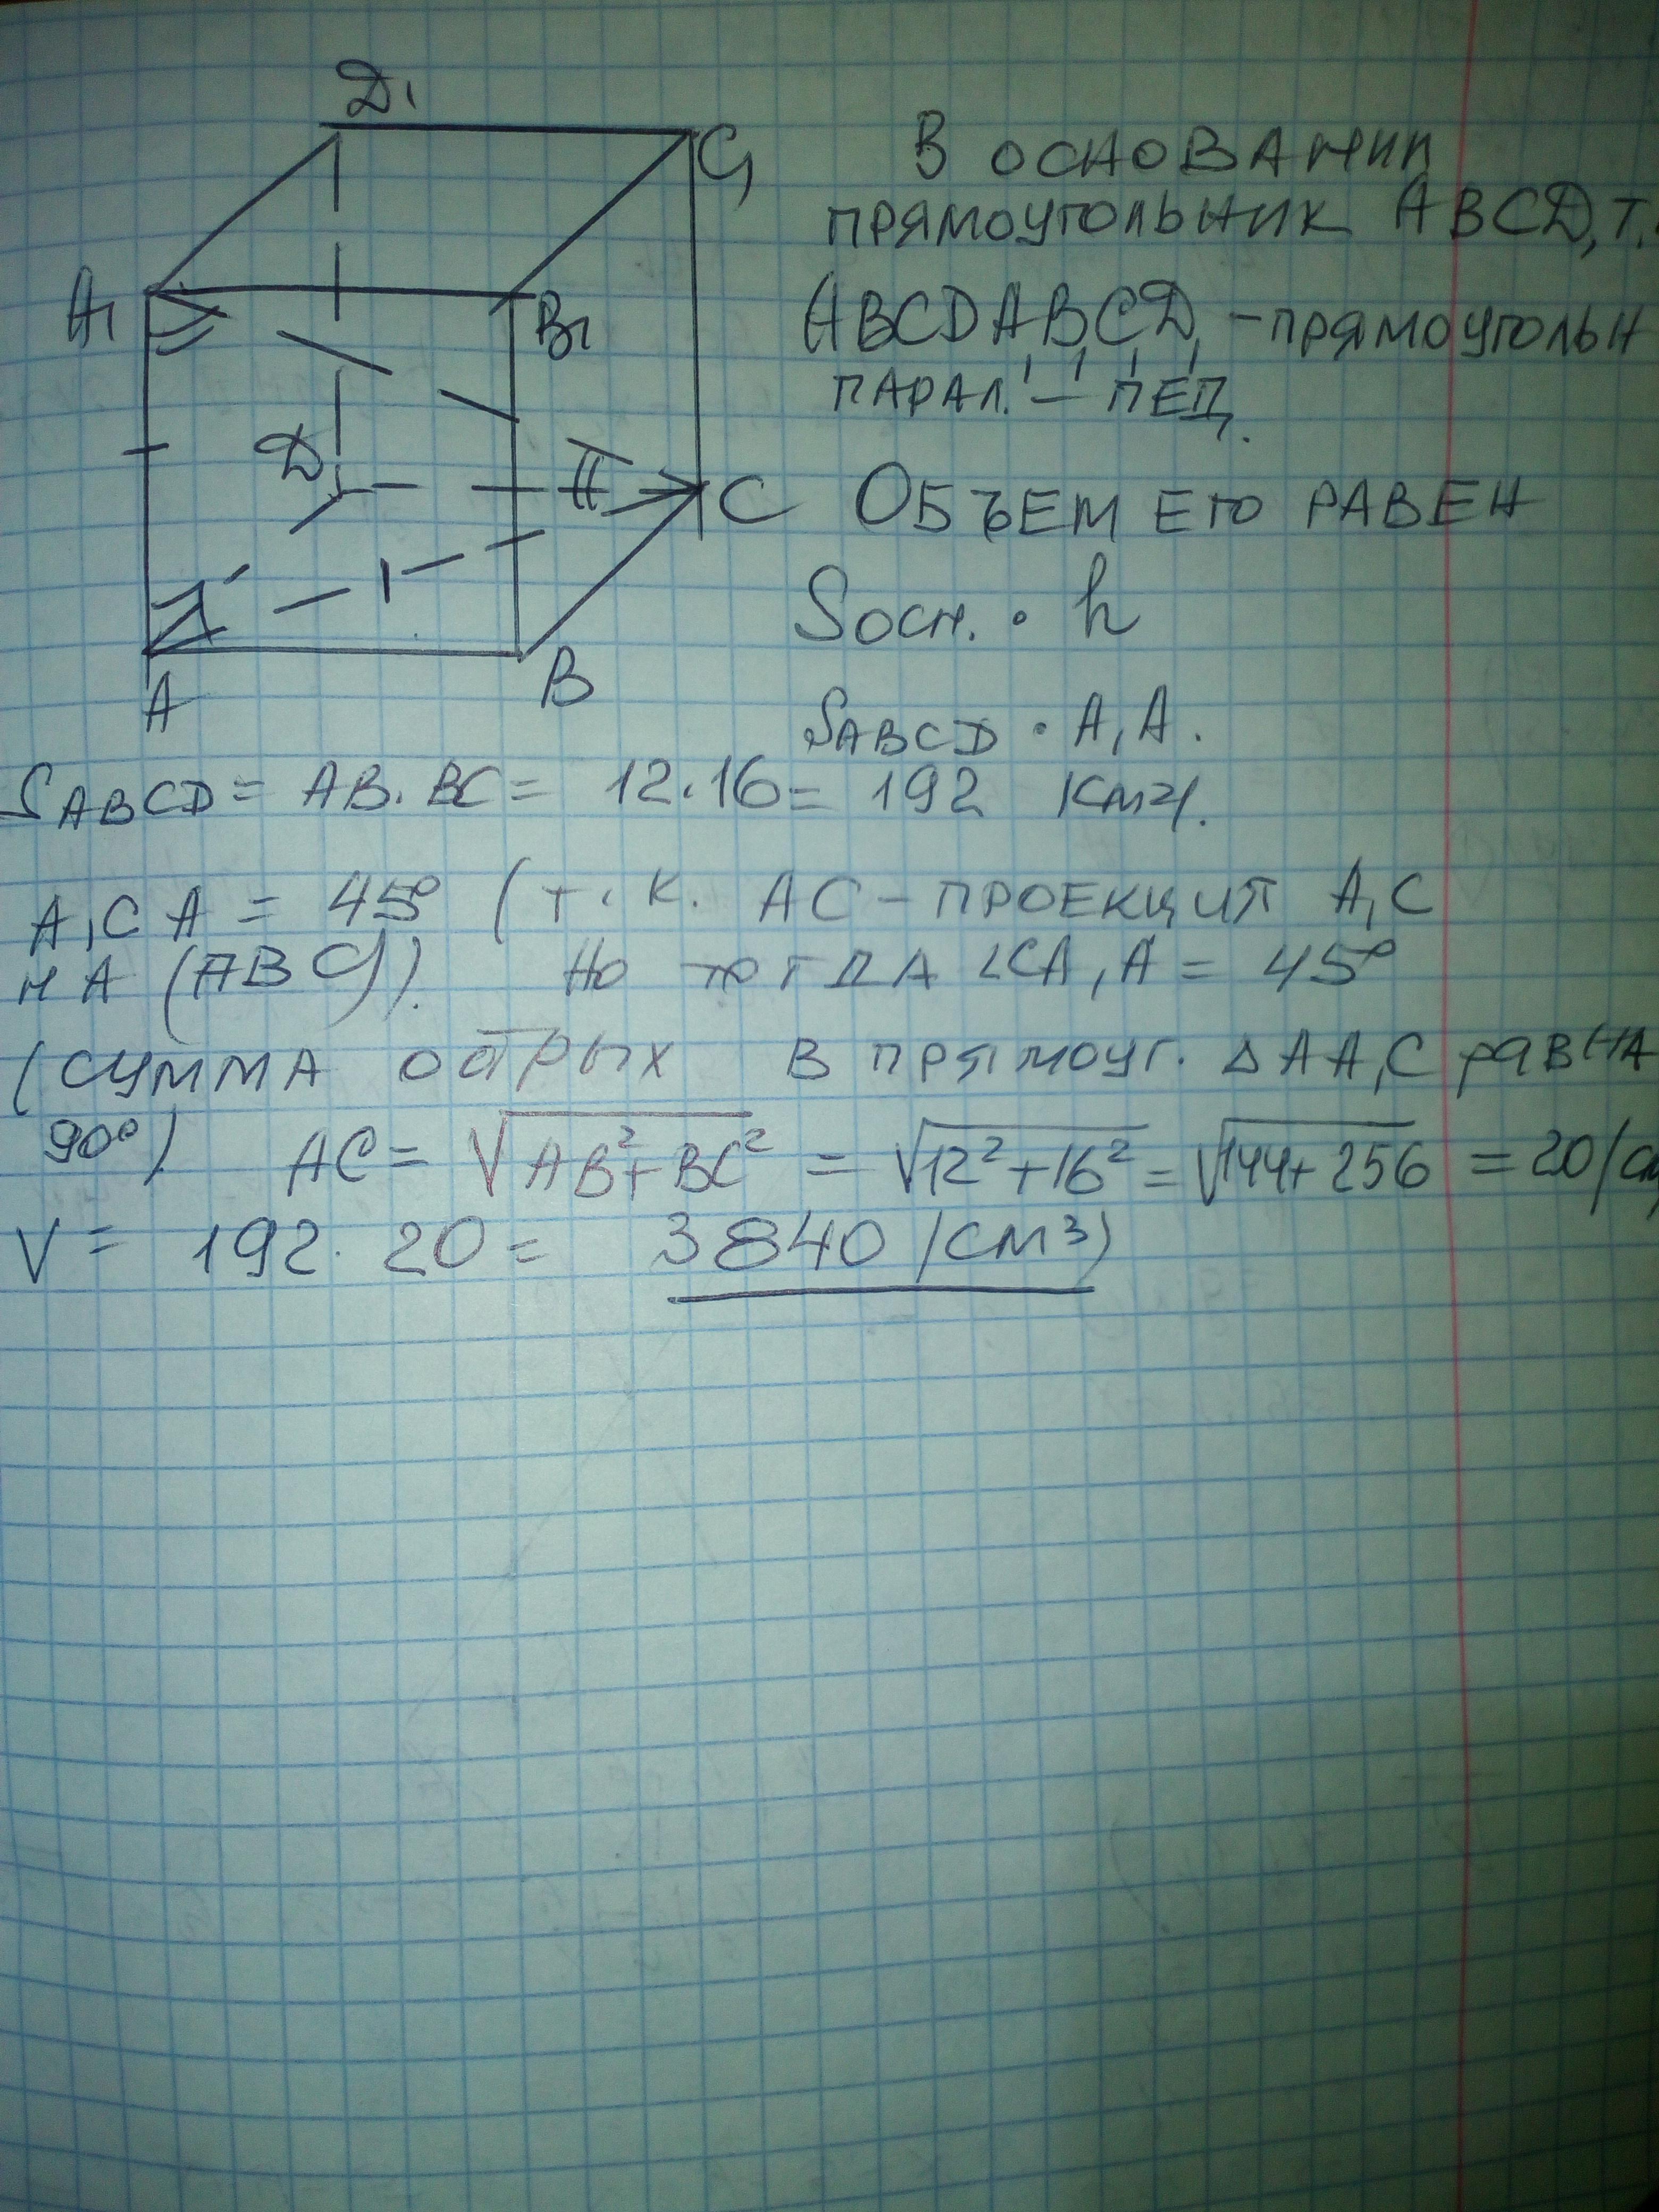 Д₁
C₁
A₁
B₁
Д
C
A
B
В ОСНОВАНИИ
ПРЯМОУГОЛЬНИК ABCD, Т.
(ABCDA₁B₁C₁D₁ - ПРЯМОУГОЛЬН
ПАРАЛ. - ПЕП.
ОБЪЕМ ЕГО РАВЕН
Sосн. · h
SABCD · A₁A.
SABCD = AB · BC = 12 · 16 = 192
A₁CA = 45° (т. к. AC - ПРОЕКЦИЯ A₁C
НА (ABC)). Но тогда ∠CA₁A = 45°
(СУММА острых В ПРЯМОУГ. ΔAA₁C РАВНА
90°) AC = √AB² + BC² = √12² + 16² = √144 + 256 = 20 (см
V = 192 · 20 = 3840 (см³)